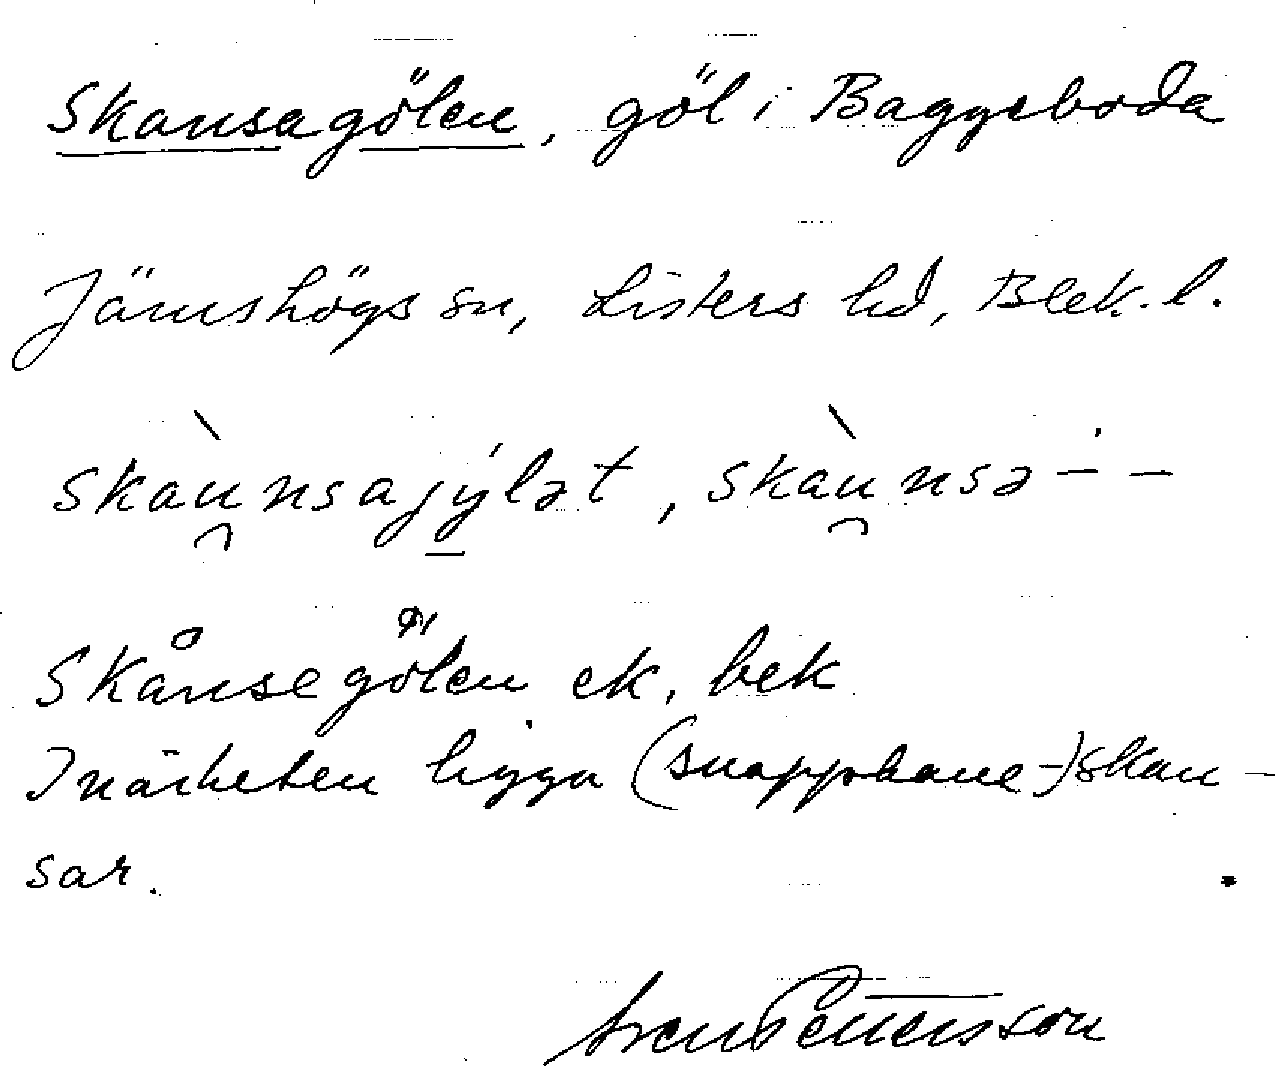 Skansagölen, göl i Baggeboda
Jämshögs sn, Listers hd, Blek. l.
skàu̯nsajýlət, skàu̯nsə- –
Skånsegölen ek, bek
I närheten ligga (snapphane-)skan-
sar.
Sven Pettersson